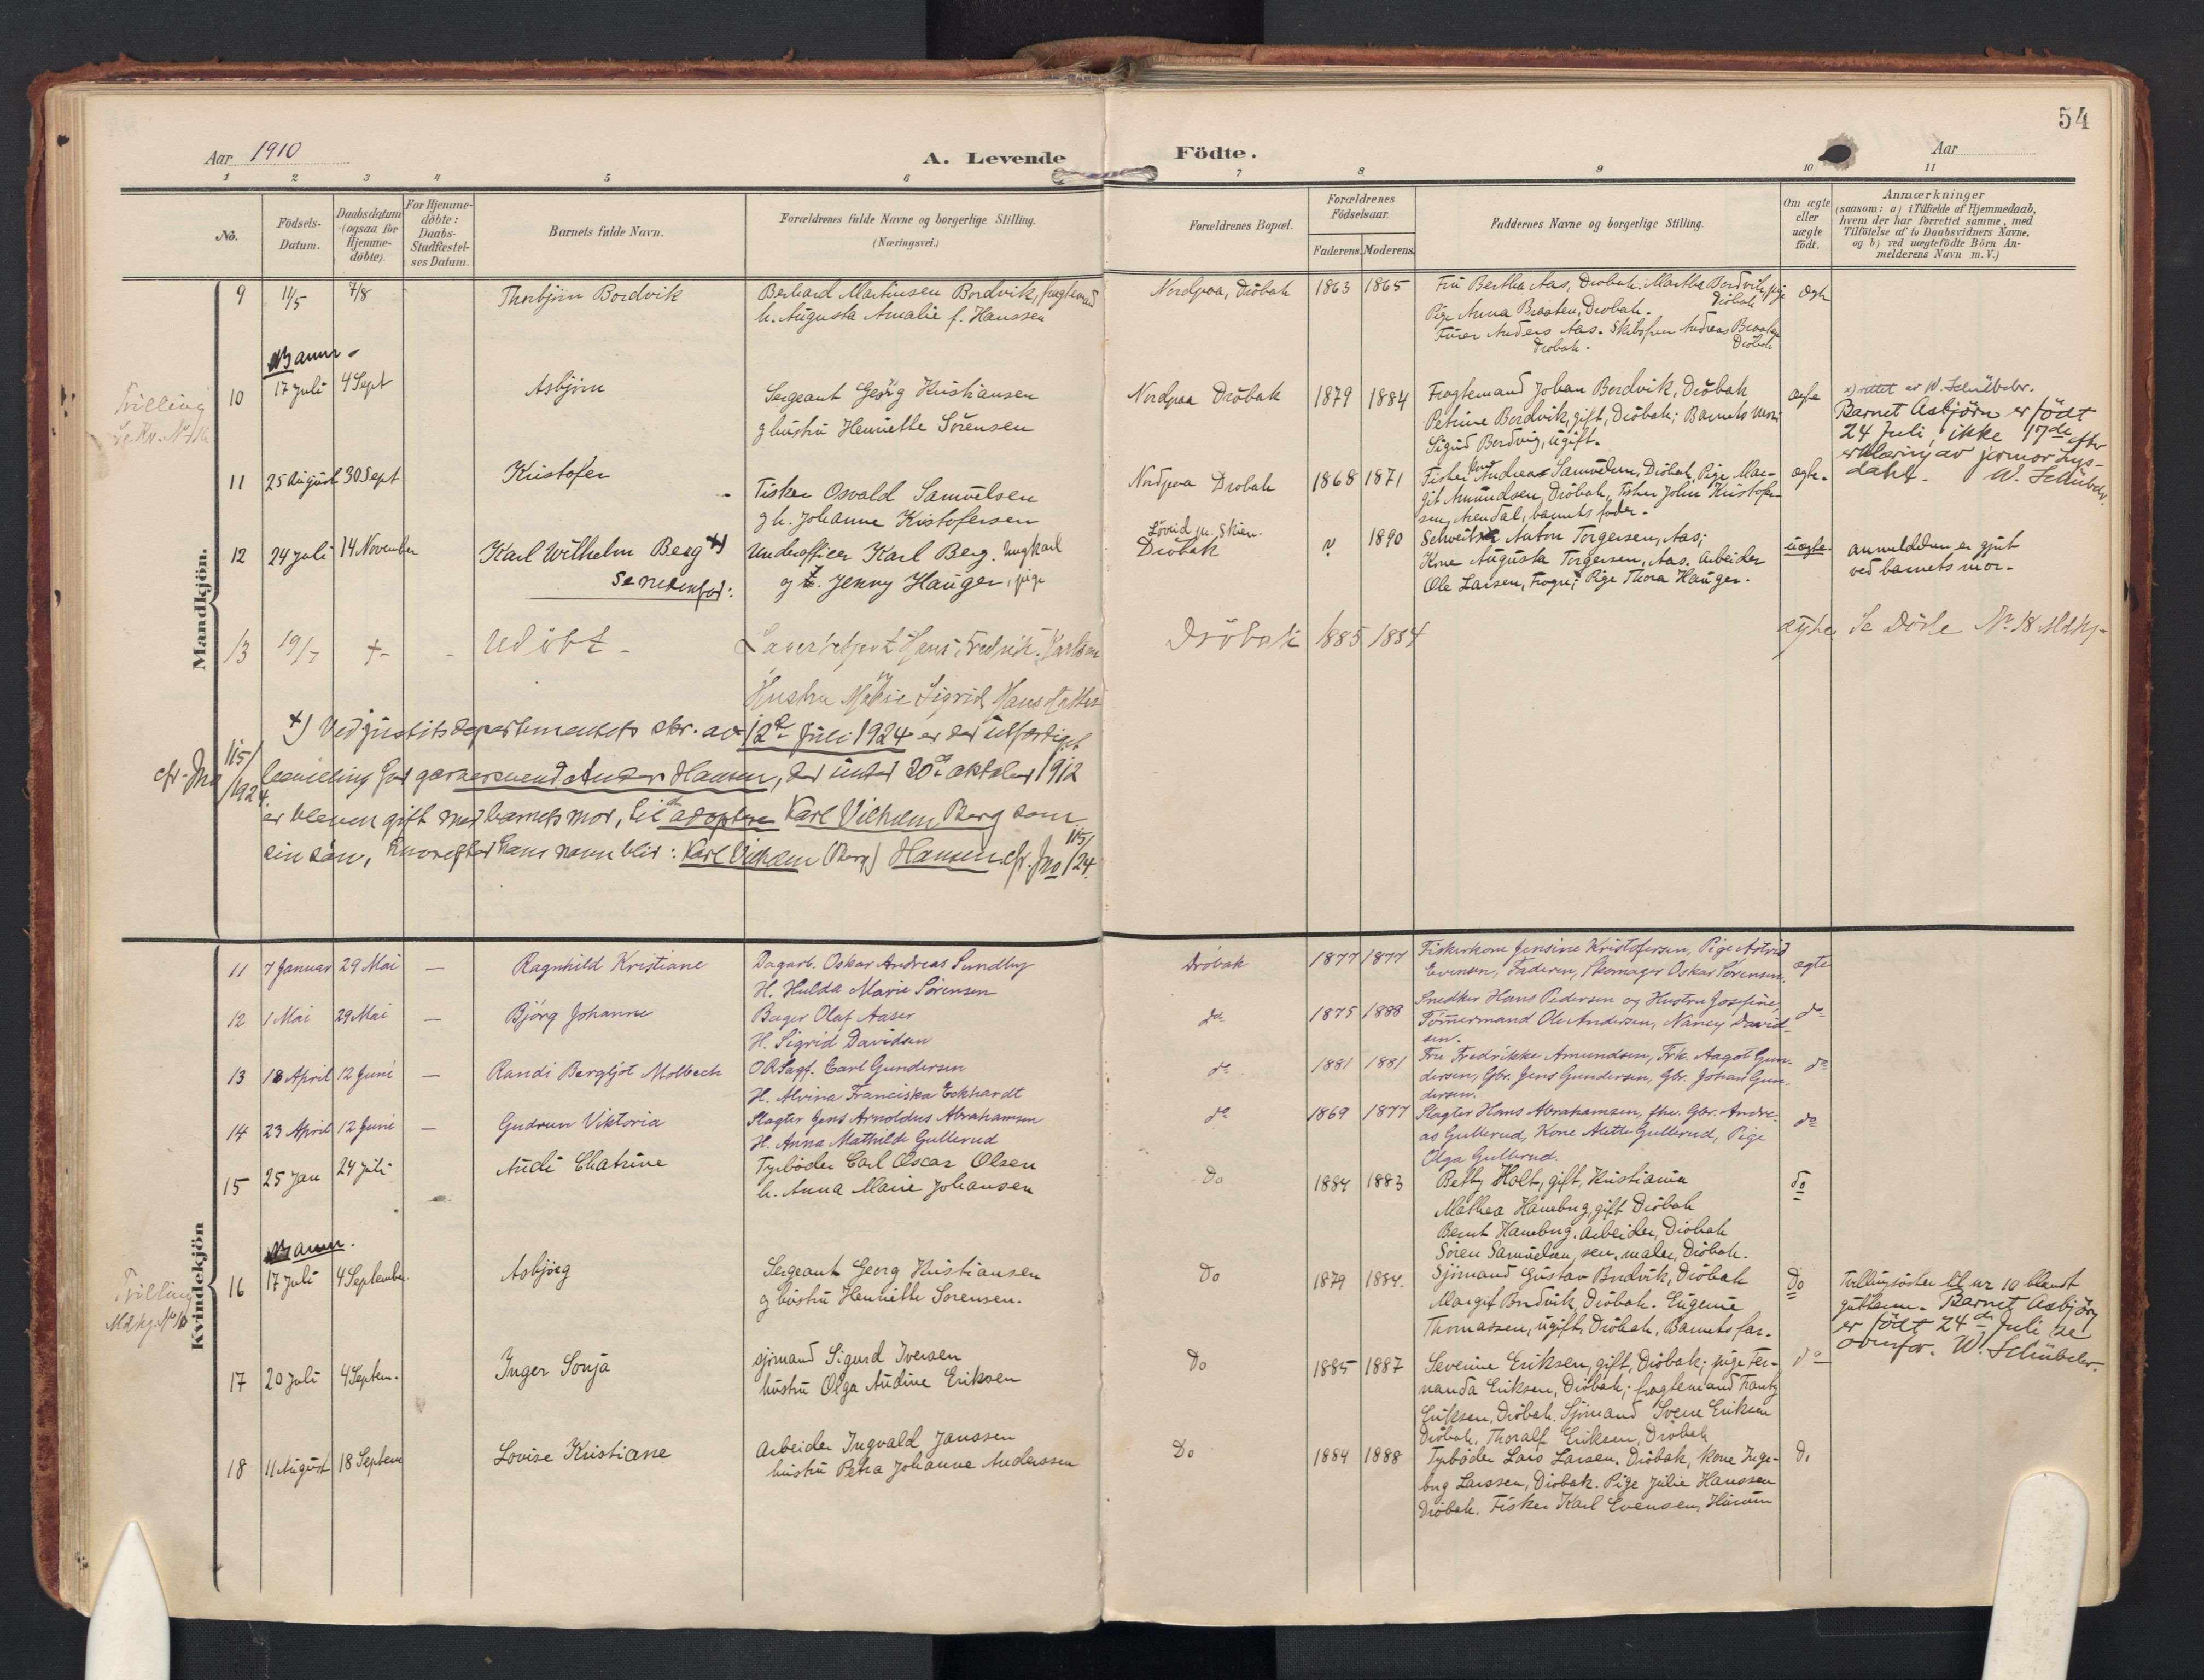 54
Aar 1910
A. Levende
Födte.
Aar
1 2 3 4 5 6 7 8 9 10 11
No.
Födsels-
Datum.
Daabsdatum
(ogsaa for
Hjemme-
döbte).
For Hjemme-
döbte:
Daabs-
Stadfæstel-
ses Datum.
Barnets fulde Navn.
Forældrenes fulde Navne og borgerlige Stilling.
(Næringsvei.)
Forældrenes Bopæl.
Forældrenes
Födselsaar.
Faderens. Moderens.
Faddernes Navne og borgerlige Stilling.
Om ægte
eller
uægte
födt.
Anmærkninger
(saasom: a) i Tilfælde af Hjemmedaab,
hvem der har forrettet samme, med
Tilföielse af to Daabsvidners Navne,
og b) ved uægtefödte Börn An-
melderens Navn m. V.)
Mandkjön.
9 11/5 7/8 Thorbjörn Bordvik
Berhard Martinsen Bordvik, fragtemand
h. Augusta Amalie f. Hanssen
Nordpaa, Dröbak 1863 1865
Fru Bertha Aas, Drobak. Martha Bordvik, pige
Dröbak
Pige Anna Braaten, Drobak.
Furer Anders Aas. Skibsfører Andreas Braaten
Drobak. Dröbak
ægte
Tvilling
10 17 Juli 4 Sept Asbjørn
Sergeant Georg Kristiansen
g hustru Henriette Sörensen
Nordpaa Dröbak 1879 1884
Fragtemand Johan Bordvik, Dröbak
Petrine Bordvik, gift, Dröbak; Barnets mor;
Sigrid Bordvig, ugift.
ægte
x) rettet av W. Schübeler.
Barnet Asbjörn er födt
24 Juli, ikke 17de efter
erklæring av jormor Lys-
dahl. W. Schübeler
11 25 August 30 Sept Kristofer
Fisker Osvald Samuelsen
g h. Johanne Kristofersen
Nordpaa Drobak 1868 1871
Fisker Andreas Samuelsen, Dröbak, Pige Mar-
git Amundsen, Dröbak, Fisker John Kristofer-
sen, Arendal, barnets fader.
ægte.
12 24 Juli 14 November Karl Wilhelm Berg +)
Se nedenfor:
Underofficer Karl Berg. Ungkarl
og Jenny Hauger, pige
Skien.
Dröbak
? 1890
Anton Torgersen, Aas;
Kone Augusta Torgersen, Aas. Arbeider
Ole Larsen, Frogn; Pige Thora Hauger.
uægte.
anmeldelsen er gjort
ved barnets mor.
13 19/7 + - Udöbt -
Hans Fredrik Karlsen
Hustru Marie Sigrid
Dröbak 1885 1884
ægte Se Döde No 18 Mdkj.
+) Ved Justitsdepartementets skr. av 12te Juli 1924 er der utfærdiget
cfr. Jno 115/1924
bevilling for gartnersvend Anders Hansen, der under 20de oktober 1912
er bleven gift med barnets mor, til at adoptere Karl Vilhelm Berg som
sin sön, hvorefter hans navn blir: Karl Vilhelm (Berg) Hansen. cfr. Jno 115/24.
Kvindekjön
11 7 Januar 29 Mai — Ragnhild Kristiane
Dagarb. Oskar Andreas Sundby
H. Hulda Marie Sörensen
Dröbak 1877 1877
Fiskerkone Jensine Kristofersen, Pige Astrid
Evensen, Faderen, Skomager Oskar Sörensen.
ægte
12 1 Mai 29 Mai — Björg Johanne
Bager Olaf Aaser
H. Sigrid Davidsen
do 1875 1888
Snedker Hans Pedersen og Hustru Josefine,
Tömmermand Ole Andersen, Nancy David-
sen.
do
13 18 April 12 Juni — Randi Bergljot Molbech
O R Sagf. Carl Gundersen
H. Alvina Franciska Eckhardt
do 1881 1881
Fru Fredrikke Amundsen, Frk. Aagot Gun-
dersen, Gbr. Jens Gundersen, Gbr. Johan Gun-
dersen.
do
14 23 April 12 Juni — Gudrun Viktoria
Slagter Jens Arnoldus Abrahamsen
H. Anna Mathilde Gullerud
do 1869 1877
Slagter Hans Abrahamsen, fhv. Gbr. Andre-
as Gullerud, Kone Alette Gullerud, Pige
Olga Gullerud.
do
15 25 Jan 24 Juli Audi Chatrine
Fyrböder Carl Oscar Olsen
h. Anna Marie Johansen
Do 1884 1883
Betsy Holt, gift, Kristiania
Mathea Haneborg, gift Dröbak
Bernt Haneborg. Arbeider, Dröbak
Sören Samuelsen, sen. maler, Dröbak.
do
Tvilling
Mdkj. No 10
16 17 Juli 4 September. Asbjörg
Sergeant Georg Kristiansen
g hustru Henriette Sorensen.
Do 1879 1884.
Sjömand Gustav Bordvik, Dröbak
Margit Bordvik, Dröbak. Eugenie
Thomassen, ugift, Dröbak, Barnets far.
Do
Tvillingsöster til nr 10 blandt
guttene. Barnet Asbjörg
er födt 24de Juli se
ovenfor. W. Schübeler.
17 20 Juli 4 Septem. Inger Sonja
sjömand Sigurd Iversen
hustru Olga Audine Eriksen
Do 1885 1887
Severine Eriksen, gift, Dröbak; pige Fer-
nanda Eriksen, Dröbak; fragtemand Frantz
Eriksen, Dröbak. Sjömand Sverre Eriksen
Dröbak. Thoralf Eriksen, Dröbak
do
18 11 August 18 Septem Lovise Kristiane
Arbeider Ingvald Janssen
hustru Petra Johanne Anderssen
Do 1884 1888
Fyrböder Lars Larsen. Dröbak, kone Inge-
borg Larssen, Dröbak. Pige Julie Hanssen
Dröbak. Fisker Karl Evensen, Hurum